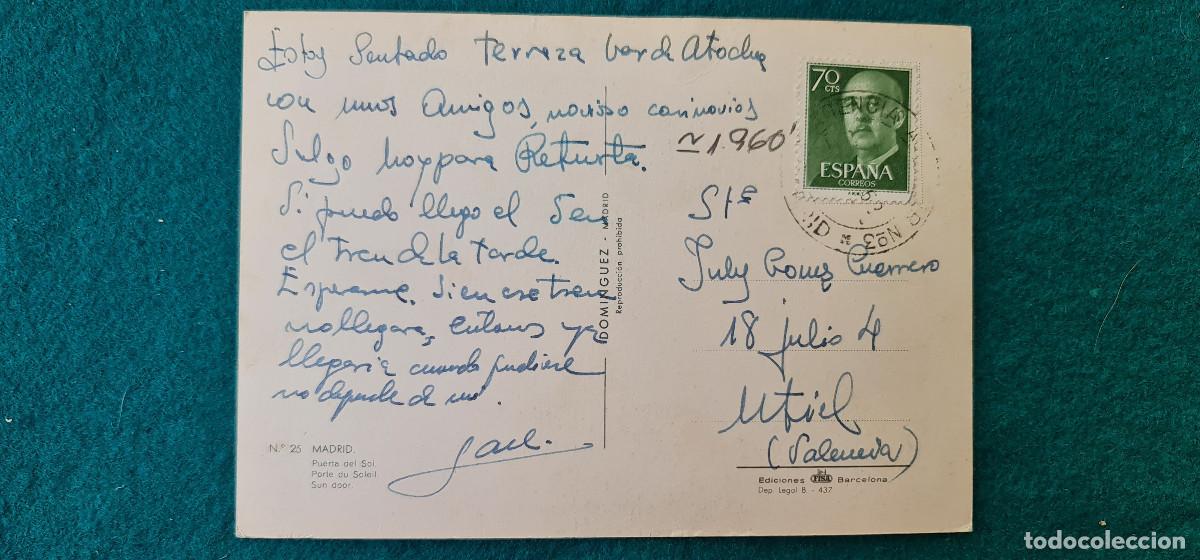 Estoy Sentado terraza bar de Atocha
con unos Amigos,
Salgo hoy para Retuerta.
Si puedo llego el
el tren de la tarde.
Esperame. Si en ese tren
no llegara, entonces ya
llegaria cuando pudiese
no depende de mi.
Nº 25 MADRID.
Puerta del Sol.
Porte du Soleil
Sun door.
DOMINGUEZ - MADRID
Reproducción prohibida
~1.960'
70
CTS
ESPAÑA
CORREOS
July Gomez Guerrero
18 julio 4
Utiel
(Valencia)
Ediciones FISA Barcelona
Dep. Legal B. - 437
todocoleccion